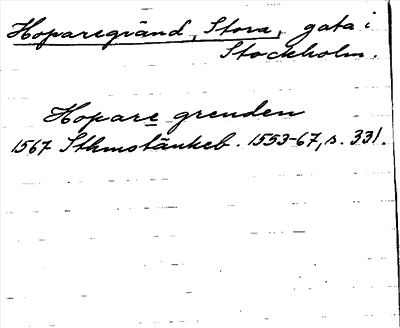 Hoparegränd, Stora, gata i
Stockholm.
Hopare grenden
1567 Sthmstänkeb. 1553-67, s. 331.